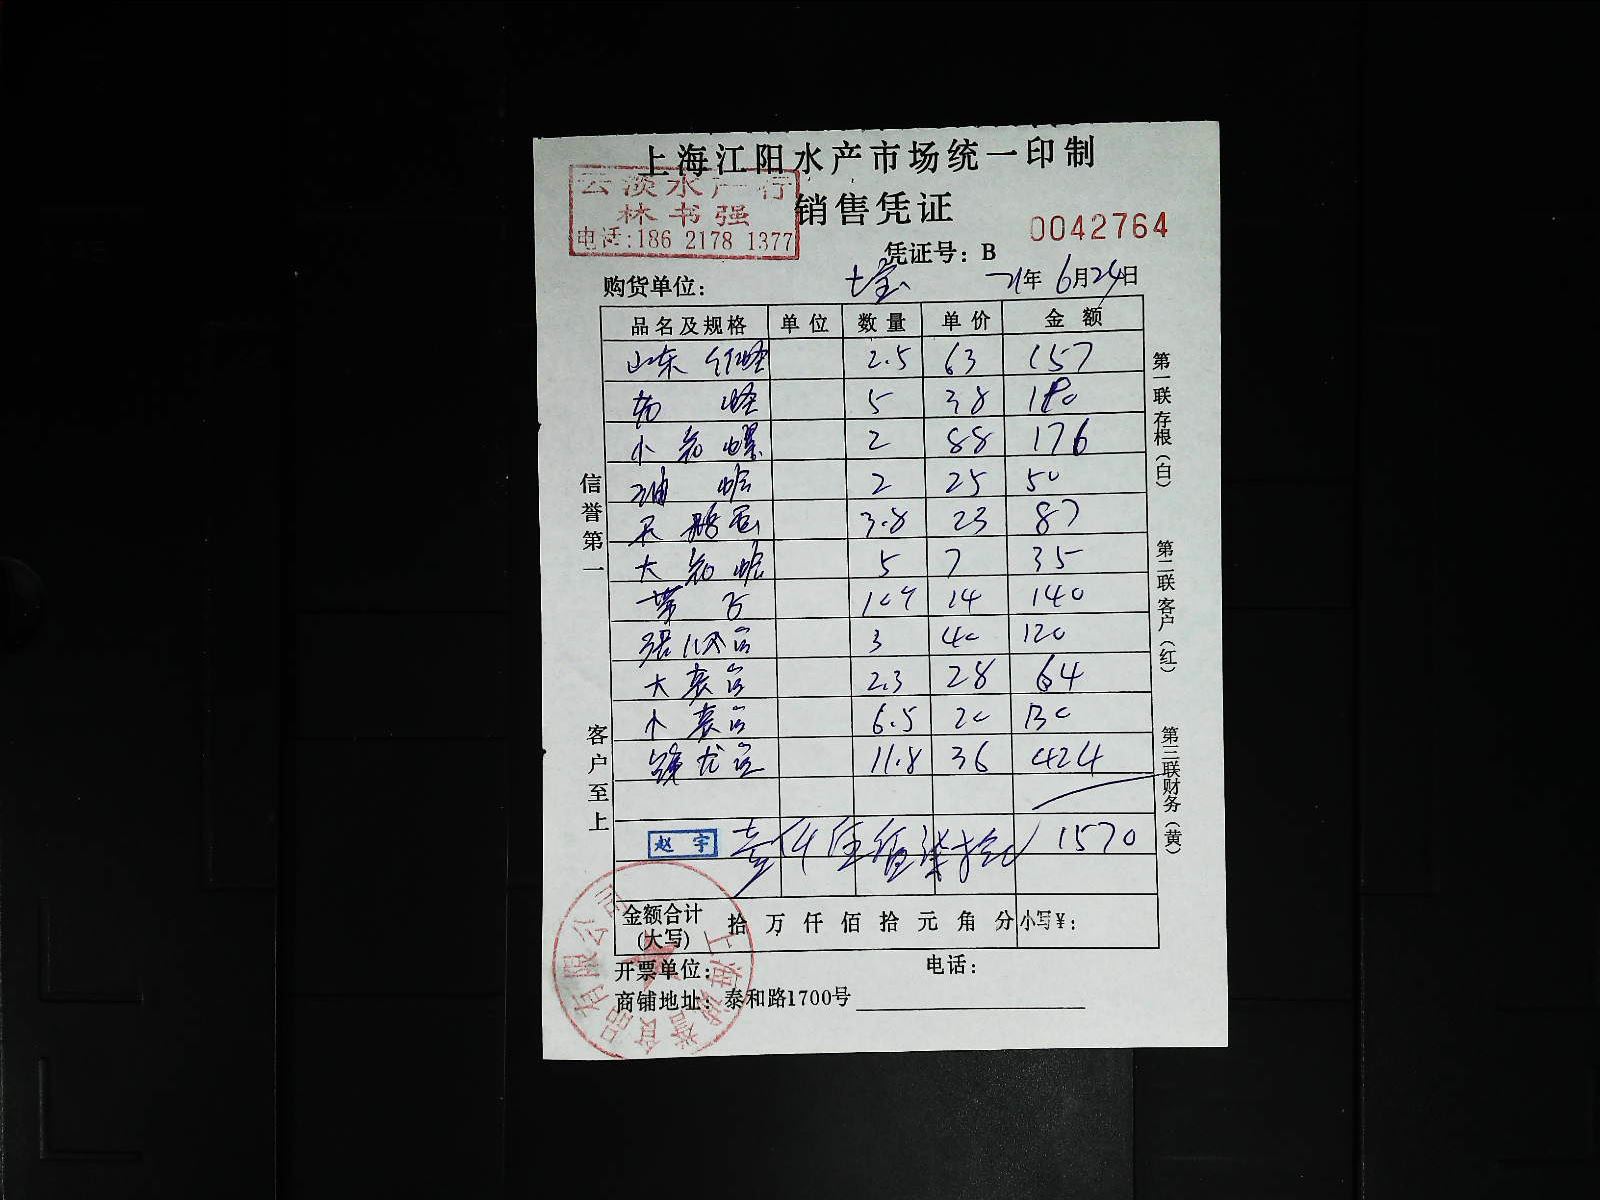 上海江阳水产市场统一印制
云淡水产行
林书强
电话:186 2178 1377
销售凭证
0042764
凭证号: B
购货单位: 七宝 21年6月24日
品名及规格 单位 数量 单价 金额
山东 红蛏 2.5 63 157
蛏 5 38
小 螺 2 88 176
油蛤 2 25 50
天鹅蛋 3.8 23 87
大 蛤 5 7 35
14 140
3 40 120
大 2.3 28 64
小 6.5 20 130
11.8 36 424
赵宇 壹仟伍佰柒拾 1570
金额合计(大写) 拾 万 仟 佰 拾 元 角 分 小写¥:
开票单位: 电话:
商铺地址: 泰和路1700号
信誉第一
客户至上
第一联存根(白)
第二联客户(红)
第三联财务(黄)